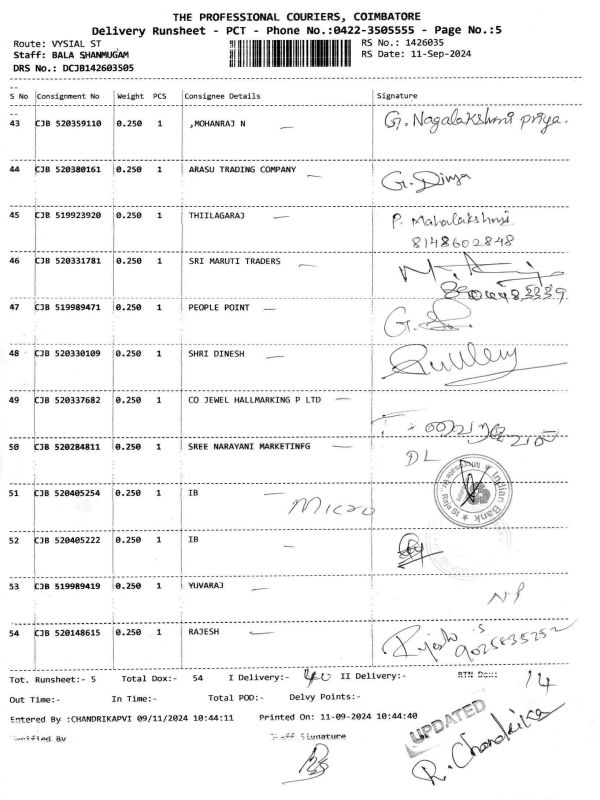 THE PROFESSIONAL COURIERS, COIMBATORE
Delivery Runsheet - PCT - Phone No.:0422-3505555 - Page No.:5
Route: VYSIAL ST RS No.: 1426035
Staff: BALA SHANMUGAM RS Date: 11-Sep-2024
DRS No.: DCJB142603505
S No Consignment No Weight PCS Consignee Details Signature
43 CJB 520359110 0.250 1 ,MOHANRAJ N G. Nagalakshmi priya.
44 CJB 520380161 0.250 1 ARASU TRADING COMPANY G. Divya
45 CJB 519923920 0.250 1 THIILAGARAJ P. Mahalakshmi
8148602848
46 CJB 520331781 0.250 1 SRI MARUTI TRADERS
47 CJB 519989471 0.250 1 PEOPLE POINT
48 CJB 520330109 0.250 1 SHRI DINESH
49 CJB 520337682 0.250 1 CO JEWEL HALLMARKING P LTD
50 CJB 520284811 0.250 1 SREE NARAYANI MARKETINFG DL
51 CJB 520405254 0.250 1 IB Micro Indian Bank
52 CJB 520405222 0.250 1 IB
53 CJB 519989419 0.250 1 YUVARAJ NP
54 CJB 520148615 0.250 1 RAJESH Rajesh s
9025835252
Tot. Runsheet:- 5 Total Dox:- 54 I Delivery:- 40 II Delivery:- RTN Dox: 14
Out Time:- In Time:- Total POD:- Delvy Points:-
Entered By :CHANDRIKAPVI 09/11/2024 10:44:11 Printed On: 11-09-2024 10:44:40
UPDATED
Verified By Staff Signature
R. Chandrika